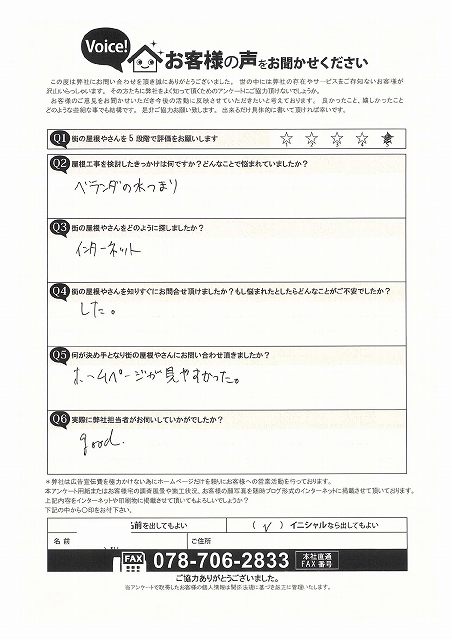 Voice! お客様の声をお聞かせください
この度は弊社にお問い合わせを頂き誠にありがとうございました。 世の中には弊社の存在やサービスをご存知ないお客様が
沢山いらっしゃいます。 その方たちに弊社をよく知って頂くためのアンケートにご協力頂けないでしょうか。
お客様のご意見をお聞かせいただき今後の活動に反映させていただきたいと考えております。 良かったこと、嬉しかったこと
どのような些細な事でも結構です。 是非ご協力お願い致します。 出来るだけ具体的に書いて頂ければ幸いです。
Q1 街の屋根やさんを5段階で評価をお願いします ☆ ☆ ☆ ☆ ★
Q2 屋根工事を検討したきっかけは何ですか?どんなことで悩まれていましたか?
ベランダの水つまり
Q3 街の屋根やさんをどのように探しましたか?
インターネット
Q4 街の屋根やさんを知りすぐにお問合せ頂けましたか?もし悩まれたとしたらどんなことがご不安でしたか?
した。
Q5 何が決め手となり街の屋根やさんにお問い合わせ頂きましたか?
ホームページが見やすかった。
Q6 実際に弊社担当者がお伺いしていかがでしたか?
good.
*弊社は広告宣伝費を極力かけない為にホームページだけを頼りにお客様への営業活動を行っております。
本アンケート用紙またはお客様宅の調査風景や施工状況、お客様の顔写真を随時ブログ形式のインターネットに掲載させて頂いております。
上記内容をインターネットや印刷物に掲載させて頂いてもよろしいでしょうか?
下記の中から〇印をお付下さい。
前を出してもよい ( ✓ ) イニシャルなら出してもよい
名 前 ご住所
FAX 078-706-2833 本社直通 FAX番号
ご協力ありがとうございました。
※アンケートで取得したお客様の個人情報は関係法規に基づき適正に管理いたします。